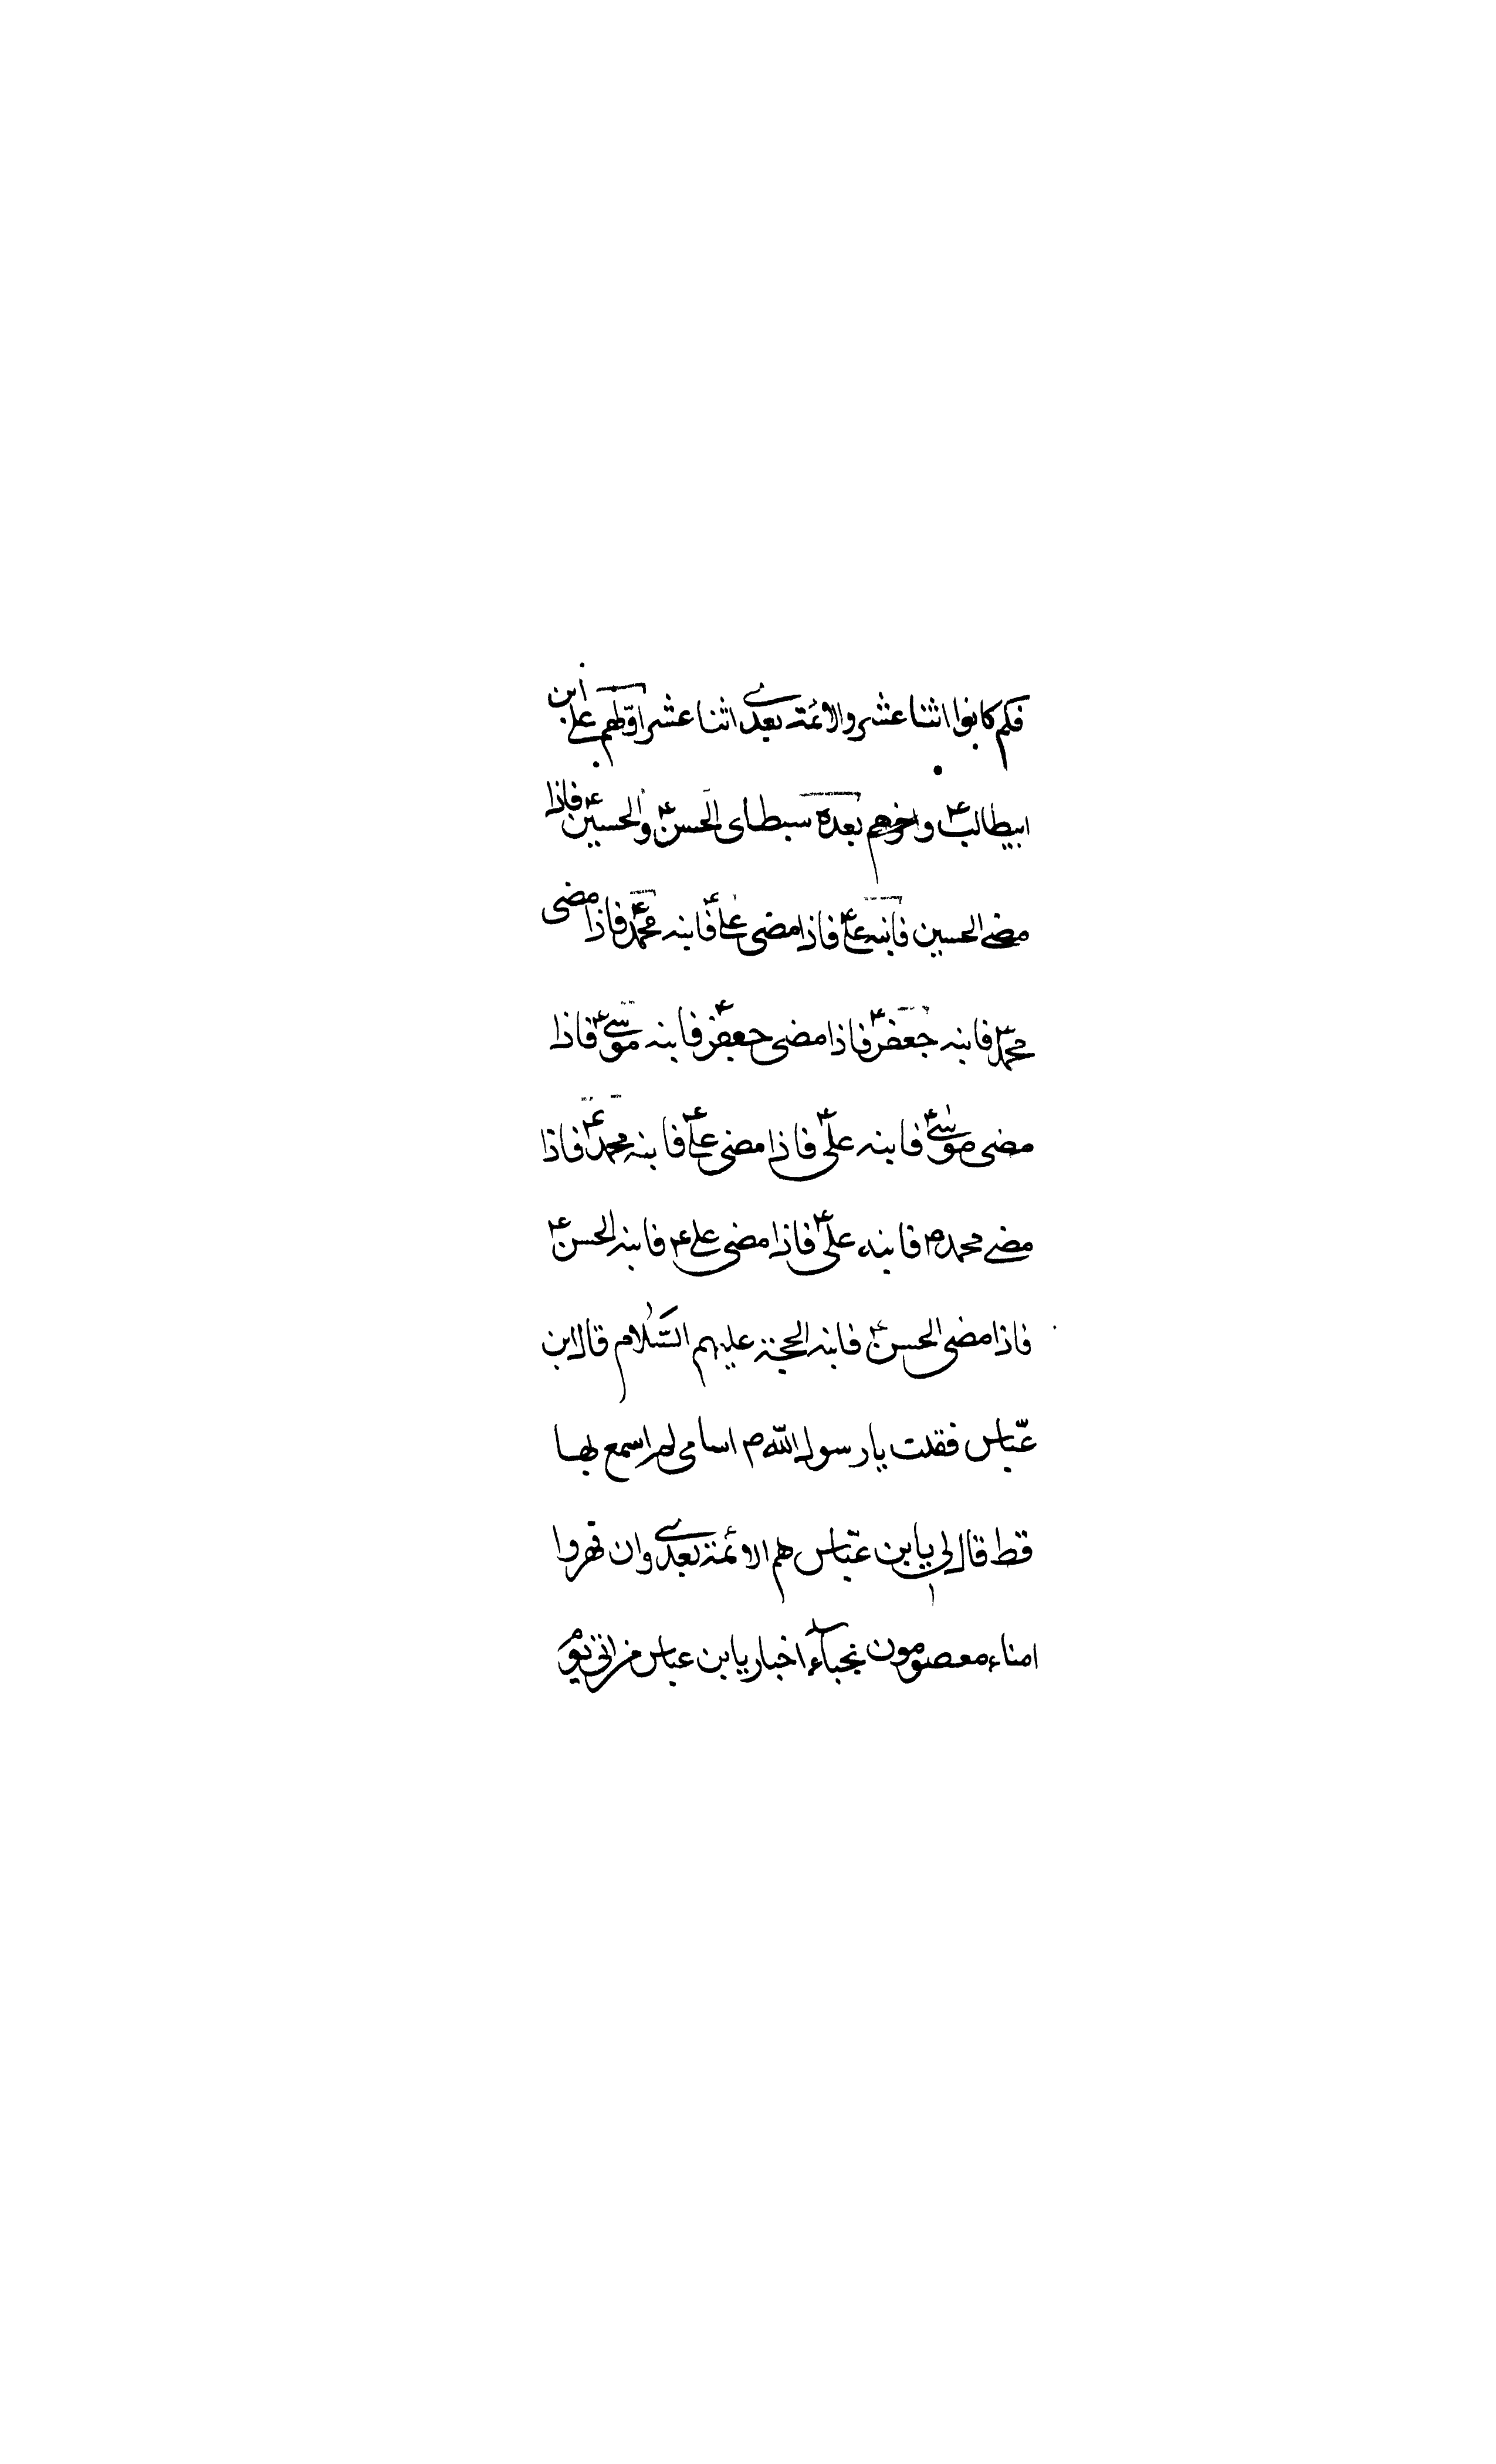 فكم كانوا اثنا عشر والائمة بعدى اثنا عشر اولهم على ابن
ابيطالب ع واخرهم بعده سبطاى الحسن ع والحسين ع فاذا
مضى الحسين فابنه على ع فاذا مضى على ع فابنه محمد ع فاذا مضى
محمد ع فابنه جعفر ع فاذا مضى جعفر ع فابنه موسى ع فاذا
مضى موسى ع فابنه على ع فاذا مضى على ع فابنه محمد ع فاذا
مضى محمد م فابنه على ع فاذا مضى على ع فابنه الحسن ع
فاذا مضى الحسن ع فابنه الحجة عليهم السّلام قال ابن
عبّاس فقلت يا رسول اللّه م اسامى لم اسمع بها
قط قال لى يابن عبّاس هم الائمة بعدى وان قهروا
امناء معصومون نجباء اخيار يابن عباس من اتى يوم